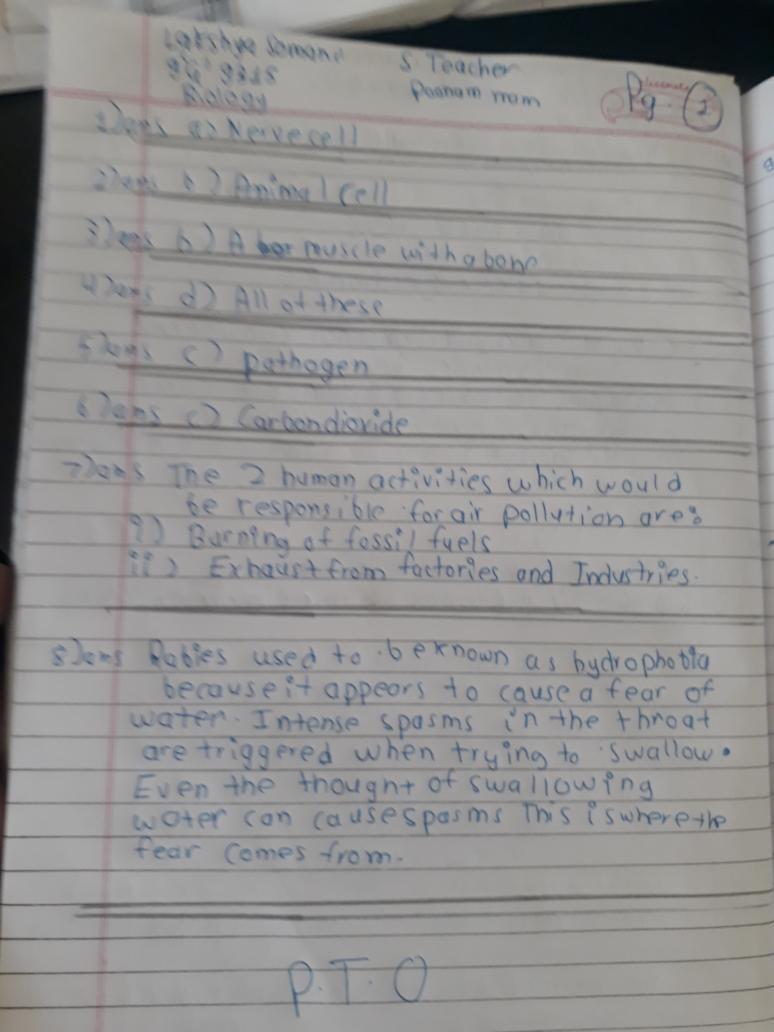 Lakshya Somani S. Teacher
Poonam mom Pg. 1
Biology
1) ans a) Nerve cell
2) ans b) Animal cell
3) ans b) A muscle with a bone
4) ans d) All of these
5) ans c) pathogen
6) ans c) Carbondioxide
7) ans The 2 human activities which would
be responsible for air pollution are:
i) Burning of fossil fuels
ii) Exhaust from factories and Industries.
8) ans Rabies used to be known as hydrophobia
because it appears to cause a fear of
water. Intense spasms in the throat
are triggered when trying to swallow.
Even the thought of swallowing
water can cause spasms This is where the
fear comes from.
P.T.O